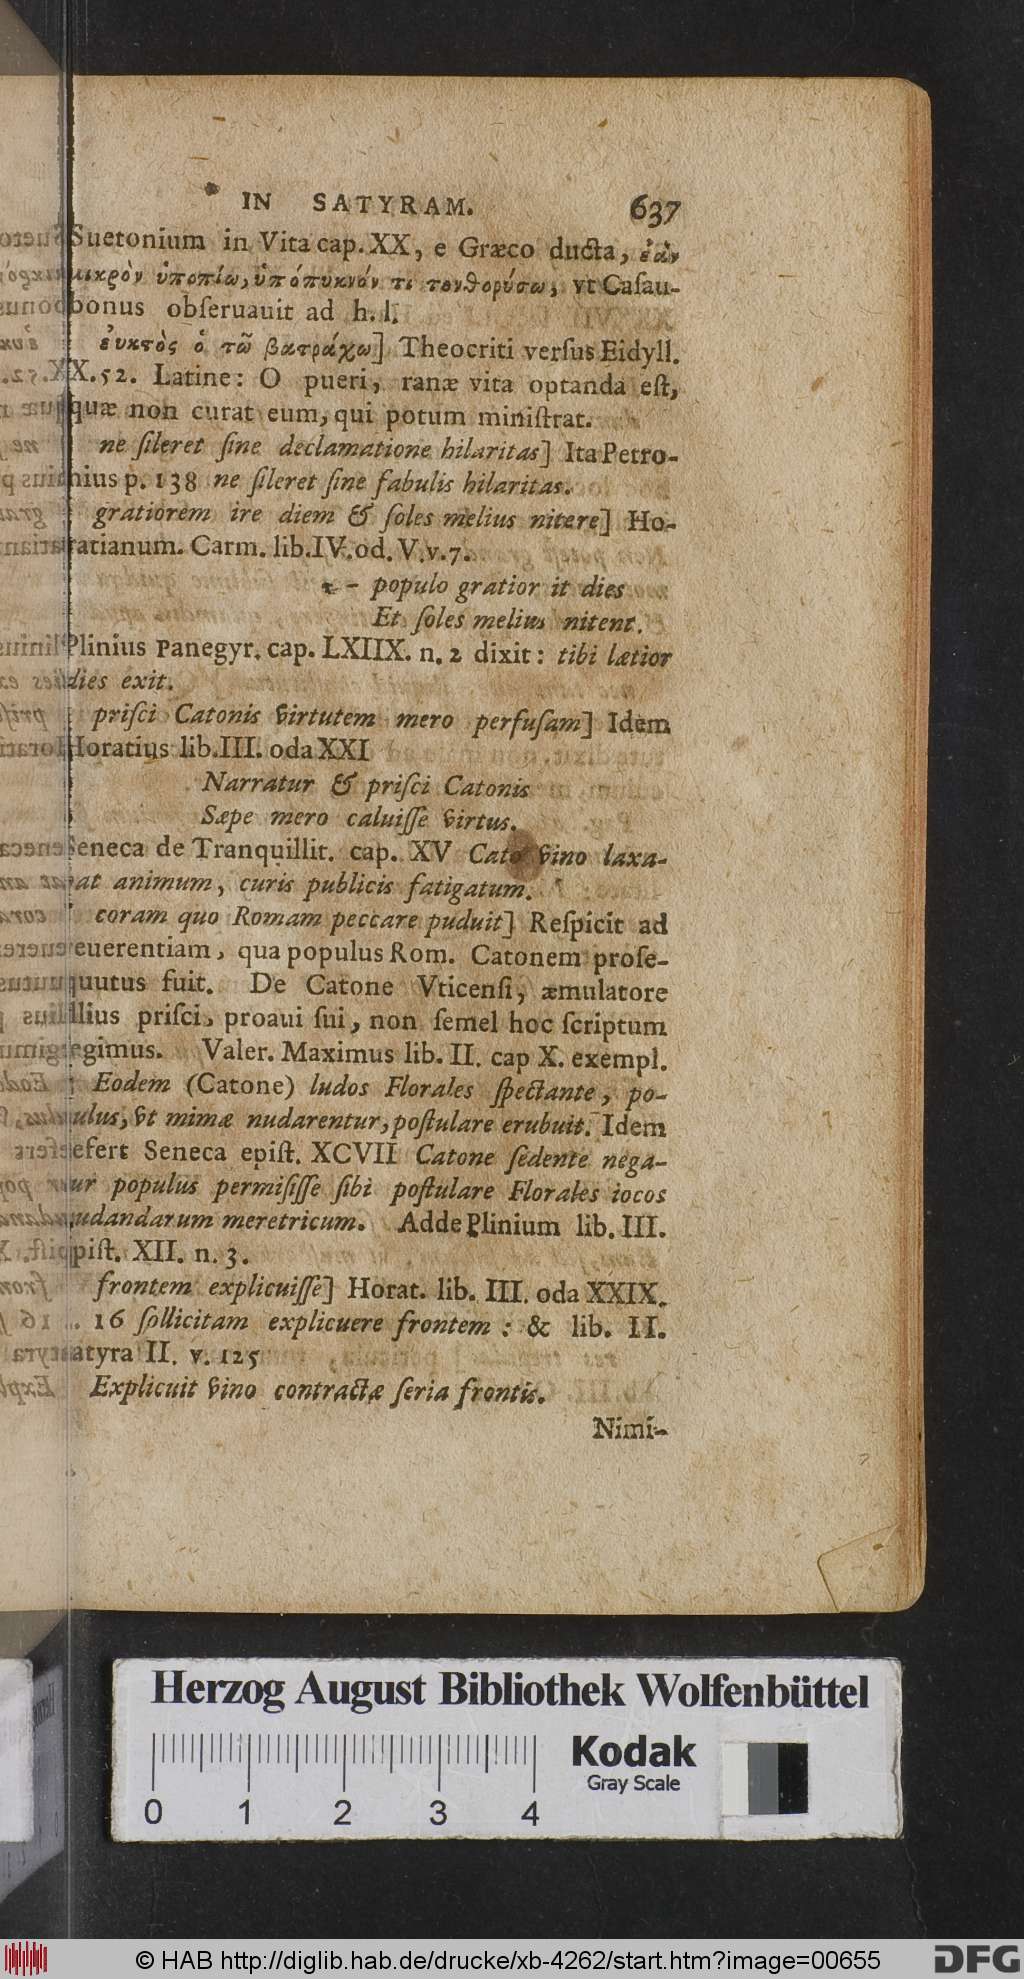 IN SATYRAM. 637
Suetonium in Vita cap. XX, e Græco ducta, ἐὰν
μικρὸν ὑποπίω, ὑπόπυκνόν τι τονθορύσω, vt Casau-
bonus obſeruauit ad h. l.
ἐυκτὸς ὁ τῶ βατράχω] Theocriti verſus Eidyll.
X. 52. Latine: O pueri, ranæ vita optanda eſt,
quæ non curat eum, qui potum miniſtrat.
ne ſileret ſine declamatione hilaritas] Ita Petro-
nius p. 138 ne ſileret ſine fabulis hilaritas.
gratiorem ire diem & ſoles melius nitere] Ho-
ratianum. Carm. lib. IV. od. V. v. 7.
- - populo gratior it dies
Et ſoles melius nitent.
Plinius Panegyr. cap. LXIIX. n. 2 dixit: tibi lætior
dies exit.
priſci Catonis virtutem mero perfuſam] Idem
Horatius lib. III. oda XXI
Narratur & priſci Catonis
Sæpe mero caluiſſe virtus.
Seneca de Tranquillit. cap. XV Cato vino laxa-
at animum, curis publicis fatigatum.
coram quo Romam peccare puduit] Reſpicit ad
euerentiam, qua populus Rom. Catonem proſe-
quutus fuit. De Catone Vticenſi, æmulatore
illius priſci, proaui ſui, non ſemel hoc ſcriptum
egimus. Valer. Maximus lib. II. cap X. exempl.
Eodem (Catone) ludos Florales ſpectante, po-
ulus, vt mimæ nudarentur, poſtulare erubuit. Idem
efert Seneca epiſt. XCVII Catone ſedente nega-
ur populus permiſiſſe ſibi poſtulare Florales iocos
udandarum meretricum. Adde Plinium lib. III.
piſt. XII. n. 3.
frontem explicuiſſe] Horat. lib. III. oda XXIX.
. 16 ſollicitam explicuere frontem: & lib. II.
atyra II. v. 125
Explicuit vino contractæ ſeria frontis.
Nimi-
Herzog August Bibliothek Wolfenbüttel
Kodak
Gray Scale
0 1 2 3 4
© HAB http://diglib.hab.de/drucke/xb-4262/start.htm?image=00655
DFG